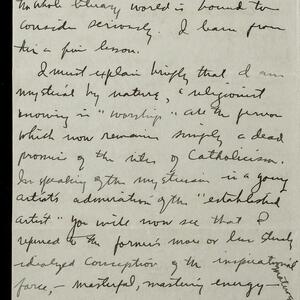 the whole literary world is bound to
consider seriously. I learn from
this a fine lesson.
I must explain briefly that I am
mystical by nature, a religionist
knowing in "worship" all the fervor
which now remains simply a dead
promise of the rites of Catholicism.
In speaking of the mysticism in a young
artist's admiration of the "established
artist" you will now see that I
referred to the former's more or less
idealized conception of the inspirational
force, — masterful, mastering energy —